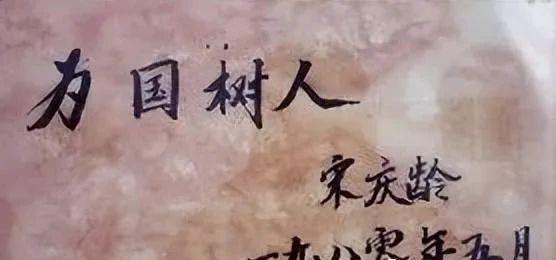 为国树人
宋庆龄
一九八零年五月